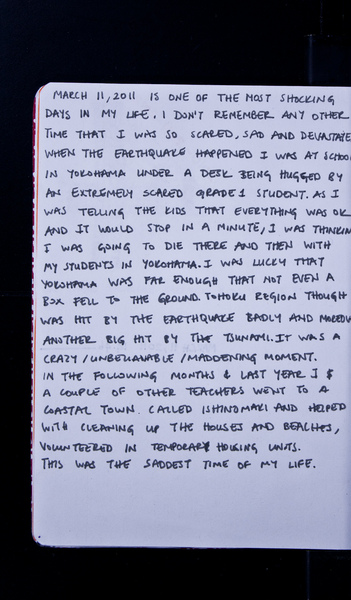 MARCH 11, 2011 IS ONE OF THE MOST SHOCKING
DAYS IN MY LIFE. I DON'T REMEMBER ANY OTHER
TIME THAT I WAS SO SCARED, SAD AND DEVASTATE
WHEN THE EARTHQUAKE HAPPENED I WAS AT SCHOOL
IN YOKOHAMA UNDER A DESK BEING HUGGED BY
AN EXTREMELY SCARED GRADE 1 STUDENT. AS I
WAS TELLING THE KIDS THAT EVERYTHING WAS OK
AND IT WOULD STOP IN A MINUTE, I WAS THINKIN
I WAS GOING TO DIE THERE AND THEN WITH
MY STUDENTS IN YOKOHAMA. I WAS LUCKY THAT
YOKOHAMA WAS FAR ENOUGH THAT NOT EVEN A
BOX FELL TO THE GROUND. TOHOKU REGION THOUGH
WAS HIT BY THE EARTHQUAKE BADLY AND MOREOV
ANOTHER BIG HIT BY THE TSUNAMI. IT WAS A
CRAZY / UNBELIAVABLE / MADDENING MOMENT.
IN THE FOLLOWING MONTHS & LAST YEAR I &
A COUPLE OF OTHER TEACHERS WENT TO A
COASTAL TOWN. CALLED ISHINOMAKI AND HELPED
WITH CLEANING UP THE HOUSES AND BEACHES,
VOLUNTEERED IN TEMPORARY HOUSING UNITS.
THIS WAS THE SADDEST TIME OF MY LIFE.